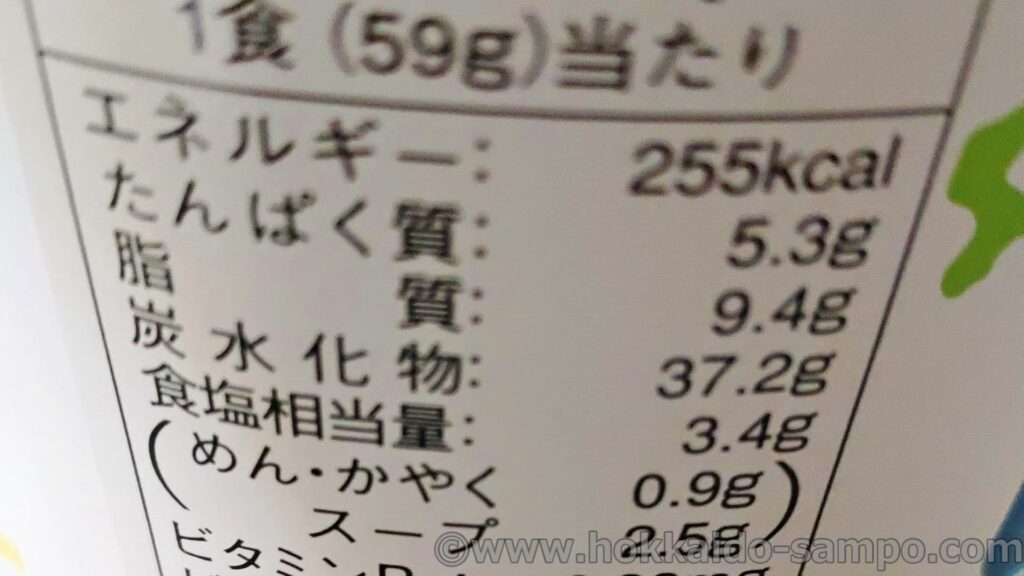 1食(59g)当たり
エネルギー: 255kcal
たんぱく質: 5.3g
脂質: 9.4g
炭水化物: 37.2g
食塩相当量: 3.4g
(めん・かやく 0.9g)
スープ 2.5g
ビタミン
©www.hokkaido-sampo.com